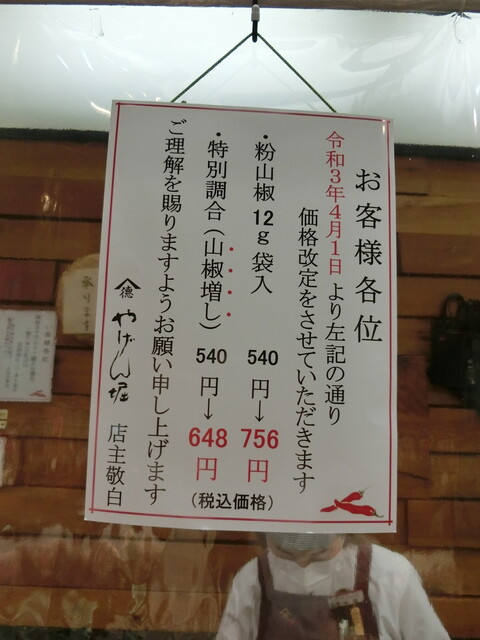 お客様各位
令和3年4月1日より左記の通り
価格改定をさせていただきます
・粉山椒12g袋入 540円→756円
・特別調合（山椒増し） 540円→648円
（税込価格）
ご理解を賜りますようお願い申し上げます
徳 やげん堀 店主敬白
承ります